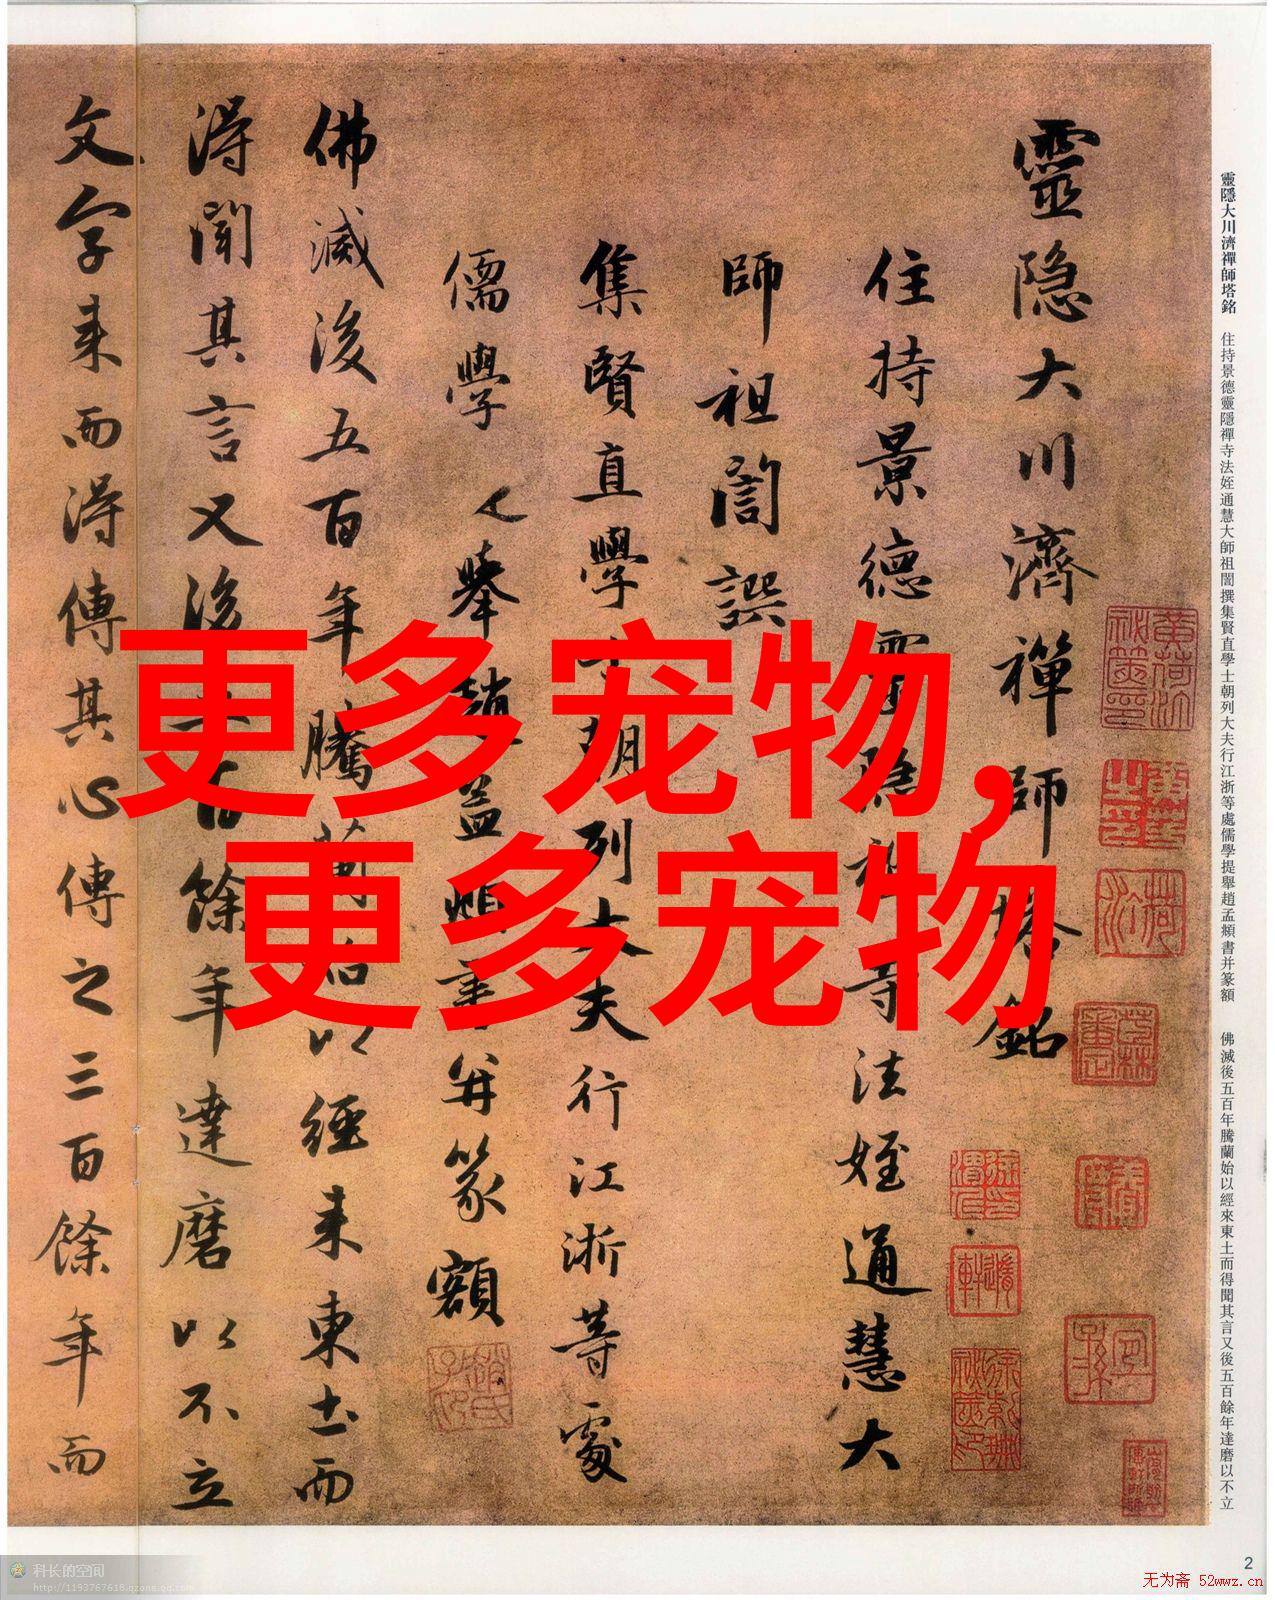 靈隐大川濟禪師塔銘
住持景德靈隐禅寺法姪通慧大
師祖誾譔
集賢直學士朝列大夫行江浙等處
儒學提舉趙孟頫書并篆額
佛滅後五百年騰蘭始以經來東土而
得聞其言又後五百餘年達磨以不立
文字来而得傳其心傳之三百餘年而
靈隱大川濟禪師塔銘 住持景德靈隱禪寺法姪通慧大師祖誾撰集賢直學士朝列大夫行江浙等處儒學提舉趙孟頫書并篆額 佛滅後五百年騰蘭始以經來東土而得聞其言又後五百餘年達磨以不立
更多宠物,
更多宠物
2
科长的空间
http://1193767618.qzone.qq.com
无为斋 52wwz.cn